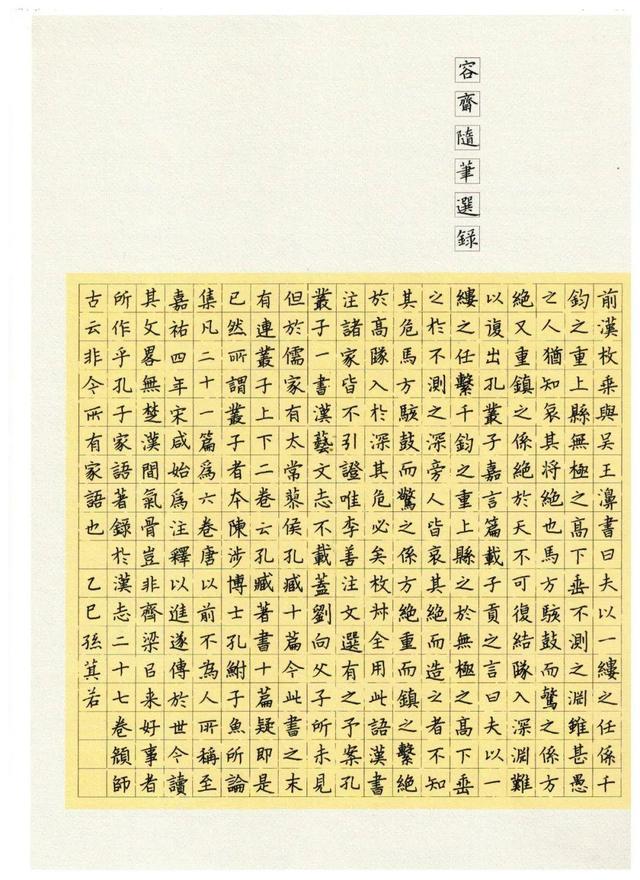 容齋隨筆選録
前漢枚乘與吳王濞書曰夫以一縷之任係千
鈞之重上縣無極之高下垂不測之淵雖甚愚
之人猶知哀其將絶也馬方駭鼓而驚之係方
絶又重鎮之係絶於天不可復結隊入深淵難
以復出孔叢子嘉言篇載子貢之言曰夫以一
縷之任繫千鈞之重上縣之於無極之高下垂
之於不測之深旁人皆哀其絶而造之者不知
其危馬方駭鼓而驚之係方絶重而鎮之繫絶
於高隊入於深其危必矣枚叔全用此語漢書
注諸家皆不引證唯李善注文選有之予案孔
叢子一書漢藝文志不載蓋劉向父子所未見
但於儒家有太常蓼侯孔臧十篇今此書之末
有連叢子上下二卷云孔臧著書十篇疑即是
已然所謂叢子者本陳涉博士孔鮒子魚所論
集凡二十一篇爲六卷唐以前不為人所稱至
嘉祐四年宋咸始爲注釋以進遂傳於世今讀
其文畧無楚漢間氣骨豈非齊梁以来好事者
所作乎孔子家語著録於漢志二十七卷顔師
古云非今所有家語也 乙巳孫其若